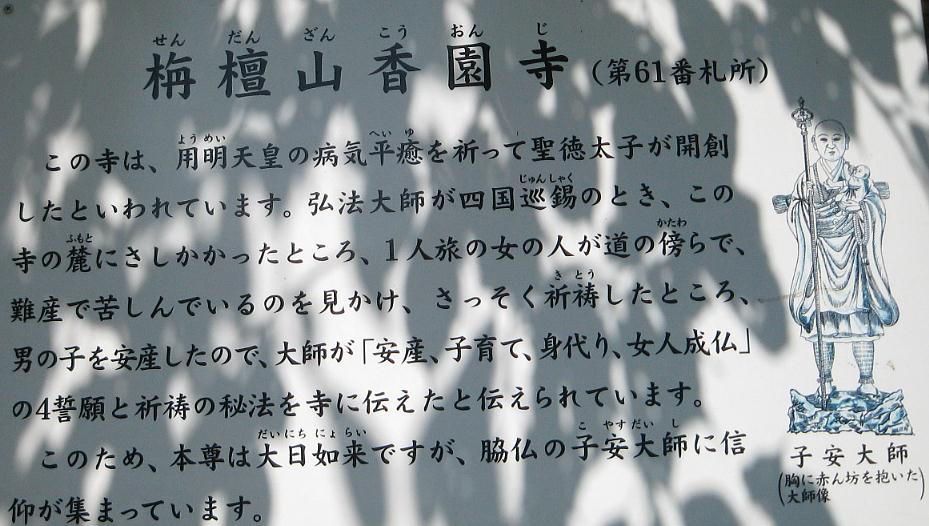 せん だん ざん こう おん じ
栴檀山香園寺(第61番札所)
よう めい へい ゆ
この寺は、用明天皇の病気平癒を祈って聖徳太子が開創
じゅんしゃく
したといわれています。弘法大師が四国巡錫のとき、この
ふもと かたわ
寺の麓にさしかかったところ、1人旅の女の人が道の傍らで、
き とう
難産で苦しんでいるのを見かけ、さっそく祈祷したところ、
男の子を安産したので、大師が「安産、子育て、身代り、女人成仏」
の4誓願と祈祷の秘法を寺に伝えたと伝えられています。
だいにち にょ らい こ やす だい し
このため、本尊は大日如来ですが、脇仏の子安大師に信
仰が集まっています。
子安大師
(胸に赤ん坊を抱いた
大師像)